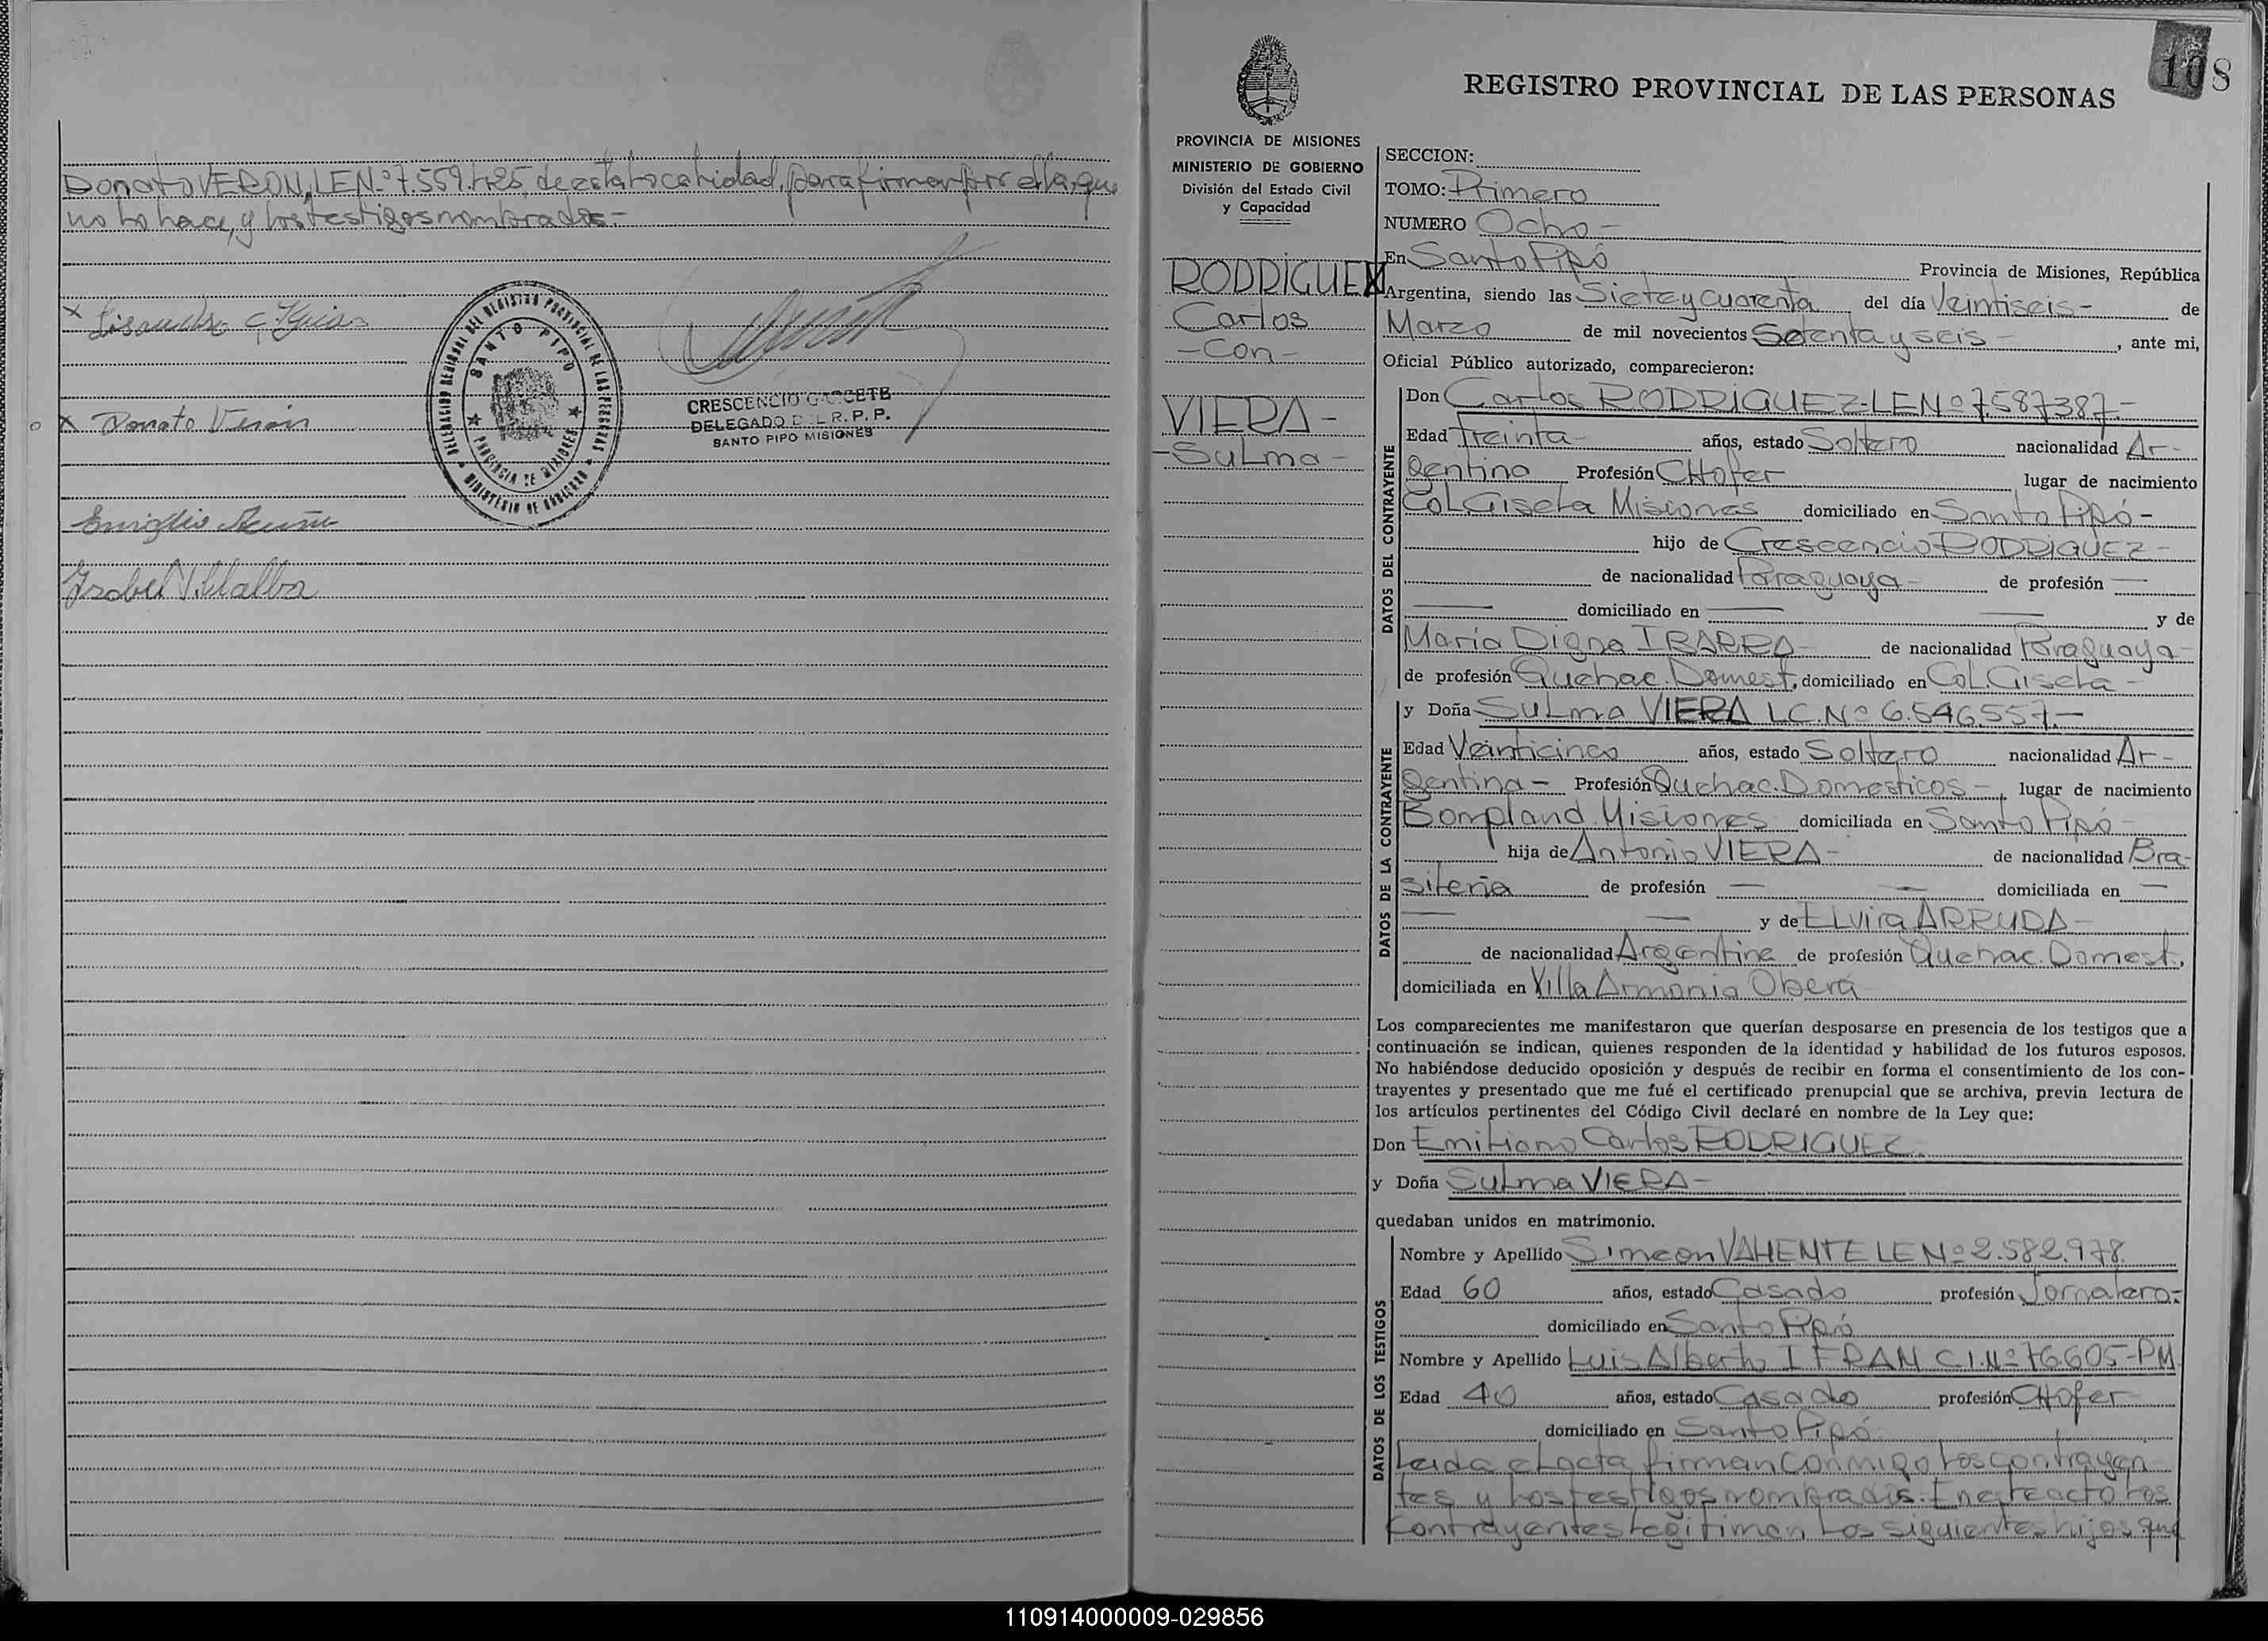 Donato VERON, LE Nº 7.559.425, de esta localidad, para firmar por ella, que
no lo hace, y los testigos nombrados.-
X Lisandro
X Donato Verón
Emiglio Acuña
Ysabel Villalba
DELEGACION REGIONAL DEL REGISTRO PROVINCIAL DE LAS PERSONAS
SANTO PIPO
PROVINCIA DE MISIONES
MINISTERIO DE GOBIERNO
CRESCENCIO GARCETE
DELEGADO DEL R. P. P.
SANTO PIPO MISIONES
108
REGISTRO PROVINCIAL DE LAS PERSONAS
PROVINCIA DE MISIONES
MINISTERIO DE GOBIERNO
División del Estado Civil
y Capacidad
RODRIGUEZ
Carlos
-Con-
VIERA-
-Sulma-
SECCION:
TOMO: Primero
NUMERO Ocho-
En Santo Pipó Provincia de Misiones, República
Argentina, siendo las Siete y cuarenta del día Veintiseis- de
Marzo de mil novecientos Setenta y seis- , ante mi,
Oficial Público autorizado, comparecieron:
DATOS DEL CONTRAYENTE
Don Carlos RODRIGUEZ-LE Nº 7.587387.-
Edad Treinta- años, estado Soltero nacionalidad Ar-
gentino Profesión CHofer lugar de nacimiento
Col. Gisela Misiones domiciliado en Santo Pipó-
hijo de Crescencio RODRIGUEZ-
de nacionalidad Paraguaya- de profesión —
— domiciliado en — — y de
Maria Digna IBARRA- de nacionalidad Paraguaya-
de profesión Quehac. Domest, domiciliado en Col. Gisela-
DATOS DE LA CONTRAYENTE
y Doña Sulma VIERA LC. Nº 6.546.557.-
Edad Veinticinco años, estado Soltero nacionalidad Ar-
gentina- Profesión Quehac. Domesticos-, lugar de nacimiento
Bompland Misiones domiciliada en Santo Pipó-
hija de Antonio VIERA- de nacionalidad Bra-
sileña de profesión — — domiciliada en —
— — y de Elvira ARRUDA-
de nacionalidad Argentina de profesión Quehac. Domest.,
domiciliada en Villa Armonia Oberá
Los comparecientes me manifestaron que querían desposarse en presencia de los testigos que a
continuación se indican, quienes responden de la identidad y habilidad de los futuros esposos.
No habiéndose deducido oposición y después de recibir en forma el consentimiento de los con-
trayentes y presentado que me fué el certificado prenupcial que se archiva, previa lectura de
los artículos pertinentes del Código Civil declaré en nombre de la Ley que:
Don Emiliano Carlos RODRIGUEZ.
y Doña Sulma VIERA-
quedaban unidos en matrimonio.
DATOS DE LOS TESTIGOS
Nombre y Apellido Simeon VALIENTE LE Nº 2.582.978.
Edad 60 años, estado Casado profesión Jornalero.-
domiciliado en Santo Pipó
Nombre y Apellido Luis Alberto IFRAN C.I. Nº 76.605-PM
Edad 40 años, estado Casado profesión CHofer-
domiciliado en Santo Pipó.
Leida el acta, firman conmigo los contrayen-
tes y los testigos nombrados. En este acto los
contrayentes legitiman los siguientes hijos que
110914000009-029856